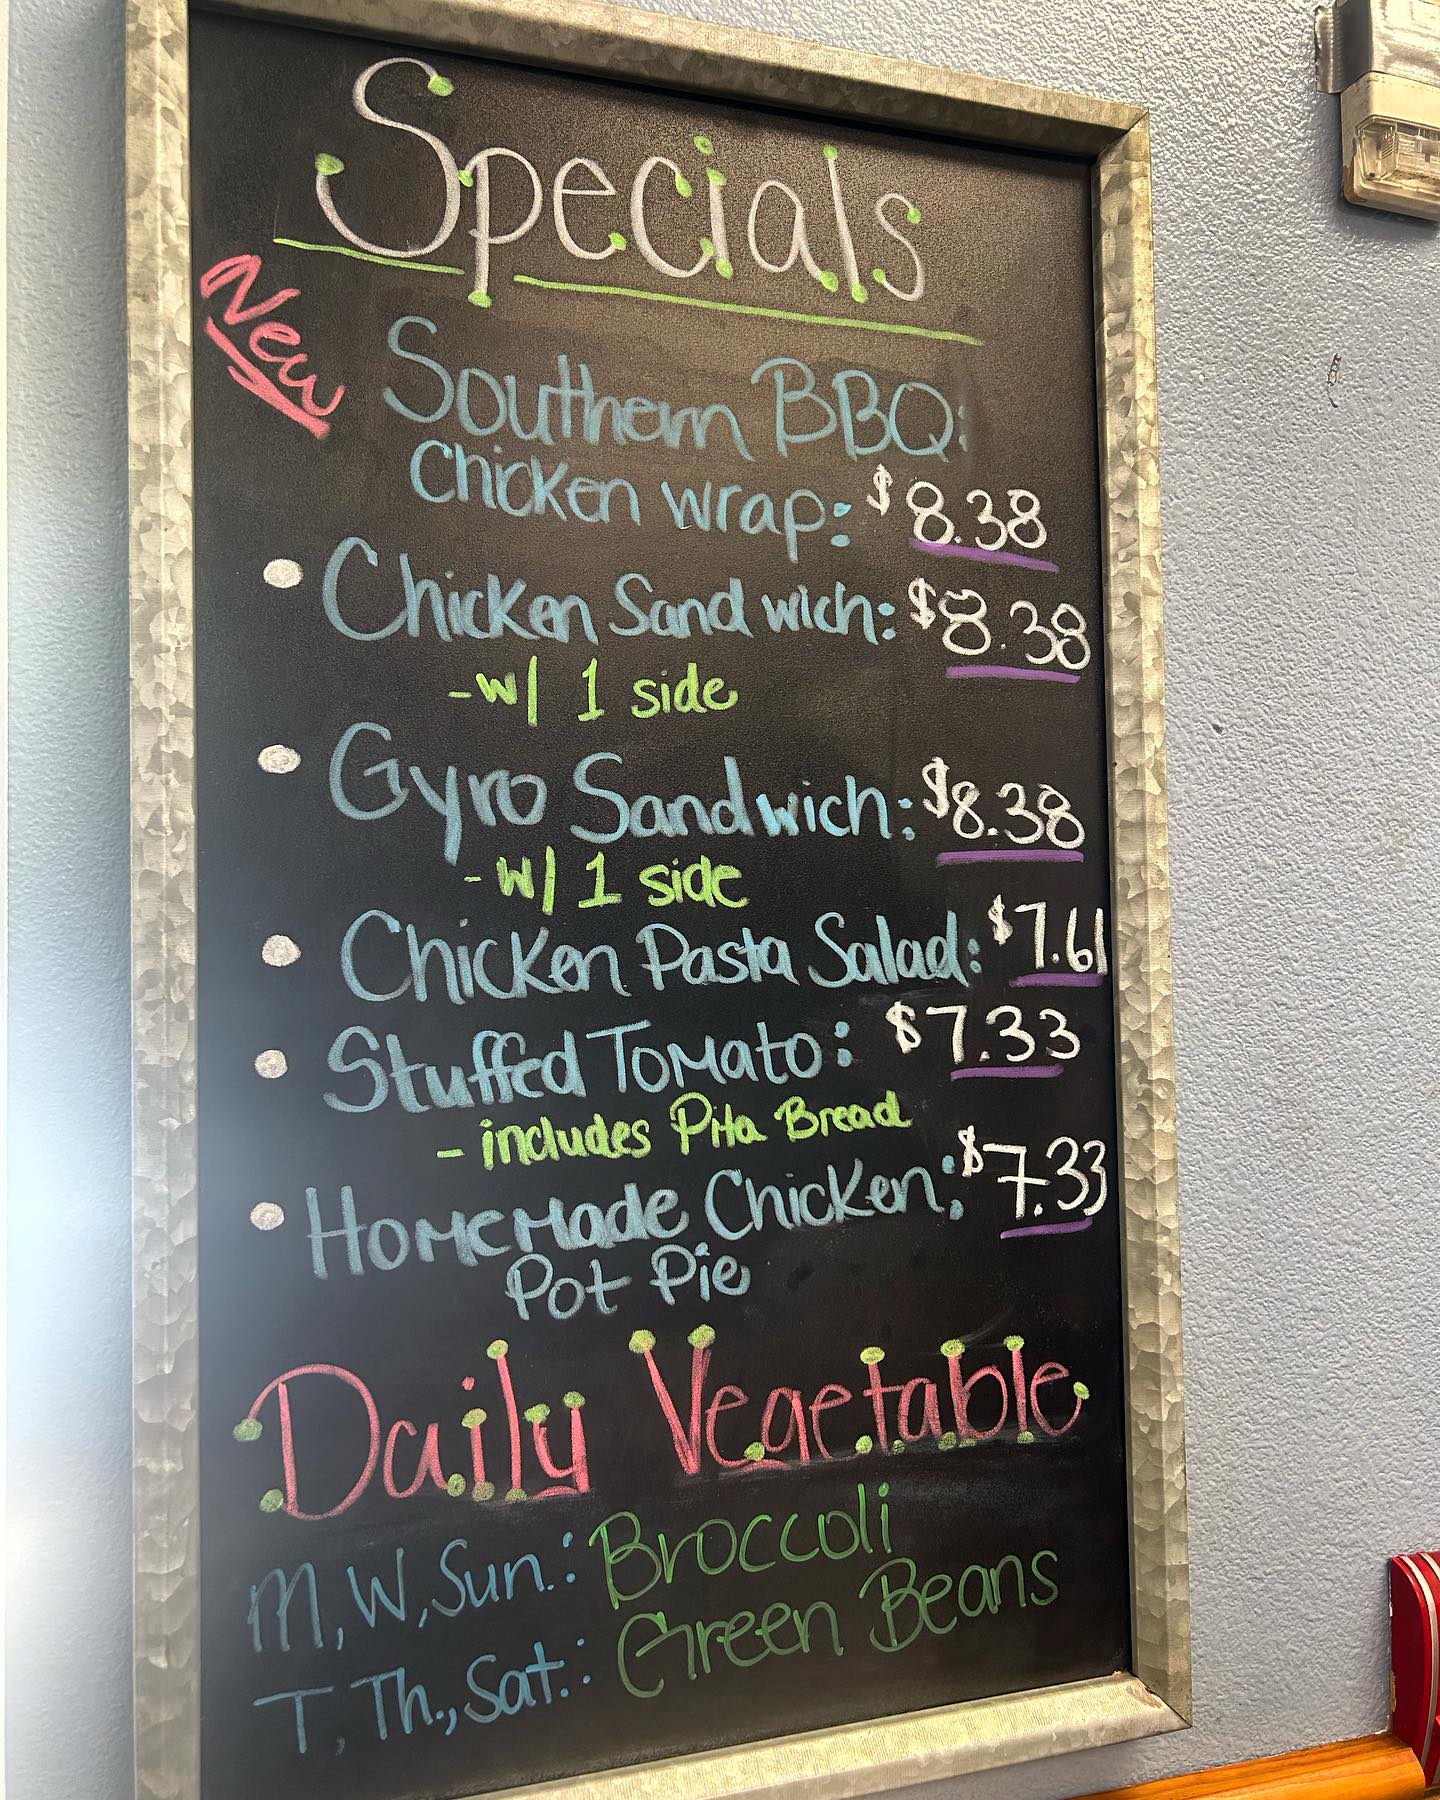 Specials
New
Southern BBQ:
Chicken wrap: $8.38
Chicken Sandwich: $8.38
- w/ 1 side
Gyro Sandwich: $8.38
- w/ 1 side
Chicken Pasta Salad: $7.61
Stuffed Tomato: $7.33
- includes Pita Bread
Homemade Chicken: $7.33
Pot Pie
Daily Vegetable
M, W, Sun.: Broccoli
T, Th., Sat.: Green Beans